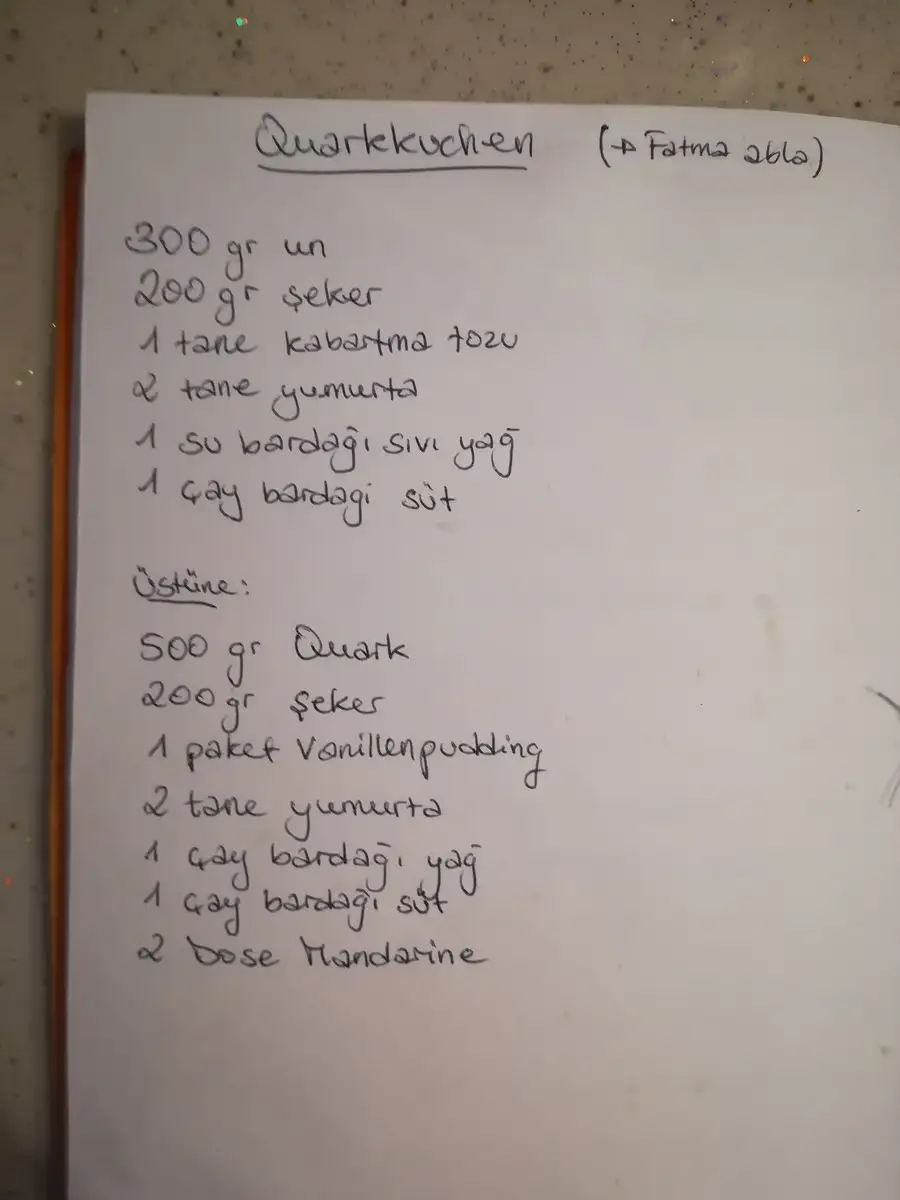 Quarkkuchen (→ Fatma abla)
300 gr un
200 gr şeker
1 tane kabartma tozu
2 tane yumurta
1 su bardağı sıvı yağ
1 çay bardagi süt
Üstüne:
500 gr Quark
200 gr şeker
1 paket Vanillenpudding
2 tane yumurta
1 çay bardağı yağ
1 çay bardağı süt
2 Dose Mandarine